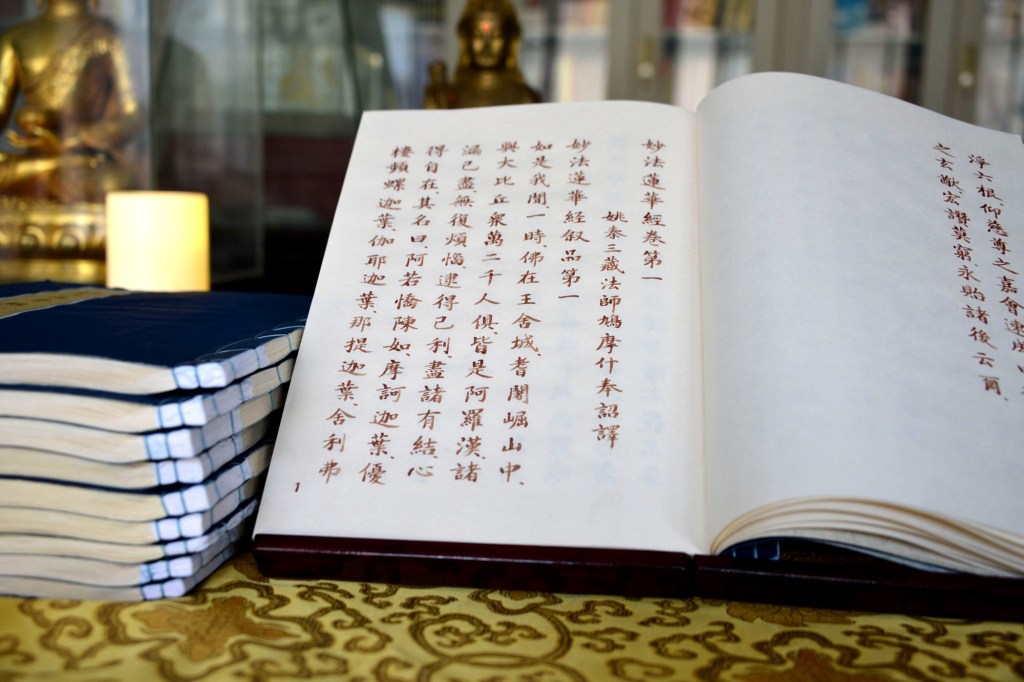 淨六根、仰慈尊之嘉會、速成
之玄猷、宏讚莫窮、永貽諸後云爾、
妙法蓮華經卷第一
姚秦三藏法師鳩摩什奉詔譯
妙法蓮華经叙品第一
如是我聞、一時、佛在王舍城、耆闍崛山中、
與大比丘衆萬二千人俱、皆是阿羅漢、諸
漏已盡、無復煩惱、逮得己利、盡諸有結、心
得自在、其名曰、阿若憍陳如、摩訶迦葉、優
樓頻螺迦葉、伽耶迦葉、那提迦葉、舍利弗
1